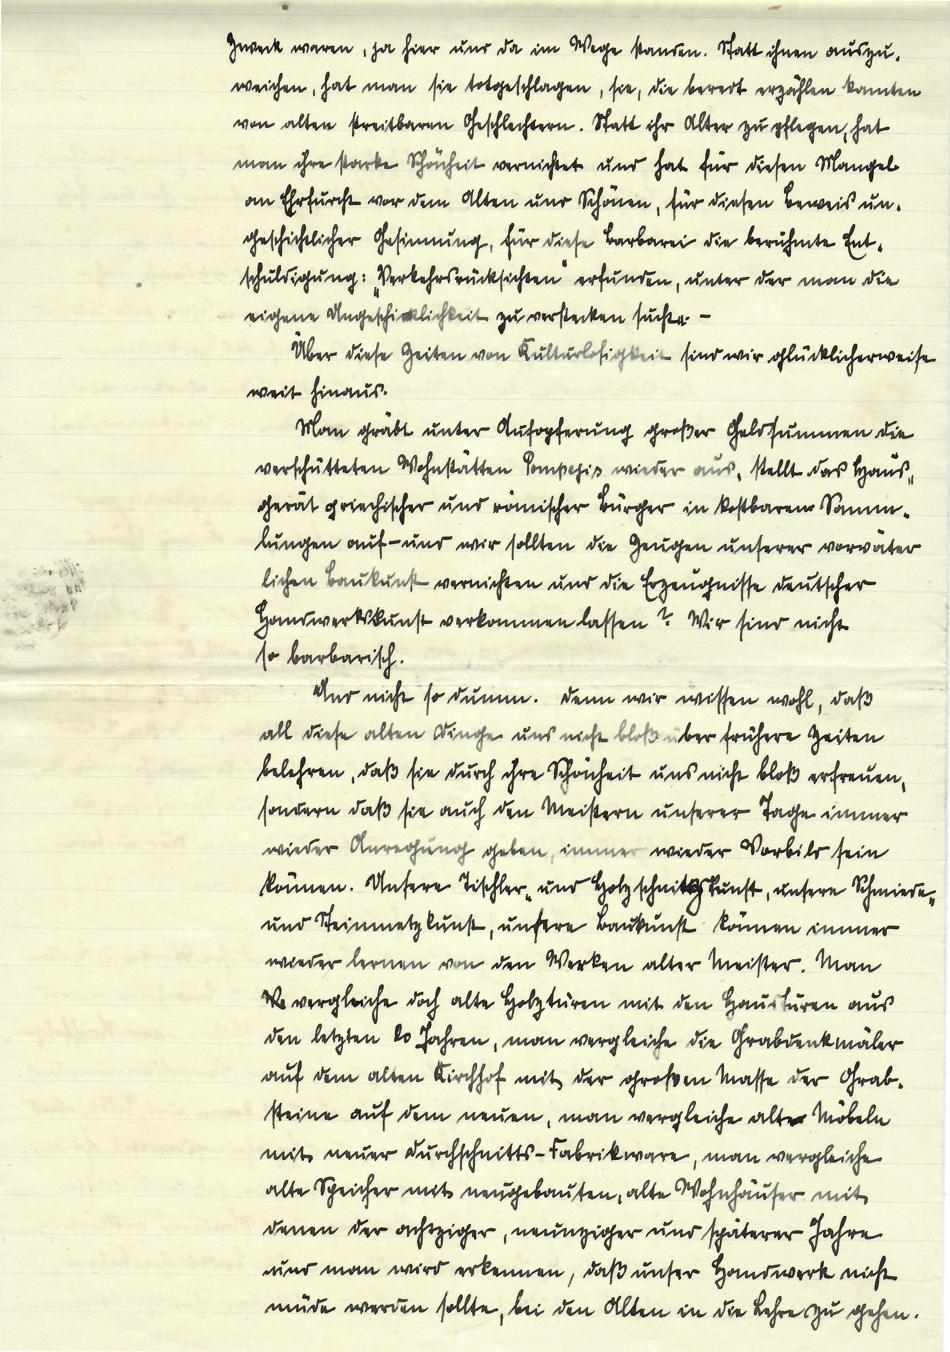 Zweck waren, ja hier und da im Wege standen. Statt ihnen auszu-
weichen, hat man sie totgeschlagen, sie, die beredt erzählen konnten
von alten streitbaren Geschlechtern. Statt ihr Alter zu pflegen, hat
man ihre starke Schönheit vernichtet und hat für diesen Mangel
an Ehrfurcht vor dem Alten und Schönen, für diesen Beweis un-
geschichtlicher Gesinnung, für diese Barbarei die berühmte Ent-
schuldigung: „Verkehrsrücksichten" erfunden, unter der man die
eigene Ungeschicklichkeit zu verstecken suchte. -
Über diese Zeiten von Kulturlosigkeit sind wir glücklicherweise
weit hinaus.
Man gräbt unter Aufopferung großer Geldsummen die
verschütteten Wohnstätten Pompejis wieder aus, stellt das Haus-
gerät griechischer und römischer Bürger in kostbaren Samm-
lungen auf - und wir sollten die Zeugen unserer vorväter
lichen Baukunst vernichten und die Erzeugnisse deutscher
Handwerkskunst verkommen lassen? Wir sind nicht
so barbarisch.
Und nicht so dumm. Denn wir wissen wohl, daß
all diese alten Dinge uns nicht bloß über frühere Zeiten
belehren, daß sie durch ihre Schönheit uns nicht bloß erfreuen,
sondern daß sie auch den Meistern unserer Tage immer
wieder Anregung geben, immer wieder Vorbild sein
können. Unsere Tischler- und Holzschnitzkunst, unsere Schmiede-
und Steinmetzkunst, unsere Baukunst können immer
wieder lernen von den Werken alter Meister. Man
vergleiche doch alte Holztüren mit den Haustüren aus
den letzten 20 Jahren, man vergleiche die Grabdenkmäler
auf dem alten Kirchhof mit der großen Masse der Grab-
steine auf dem neuen, man vergleiche alte Möbeln
mit neuer Durchschnitts-Fabrikware, man vergleiche
alte Speicher mit neugebauten, alte Wohnhäuser mit
denen der achtziger, neunziger und späterer Jahre
und man wird erkennen, daß unser Handwerk nicht
müde werden sollte, bei den Alten in die Lehre zu gehen.